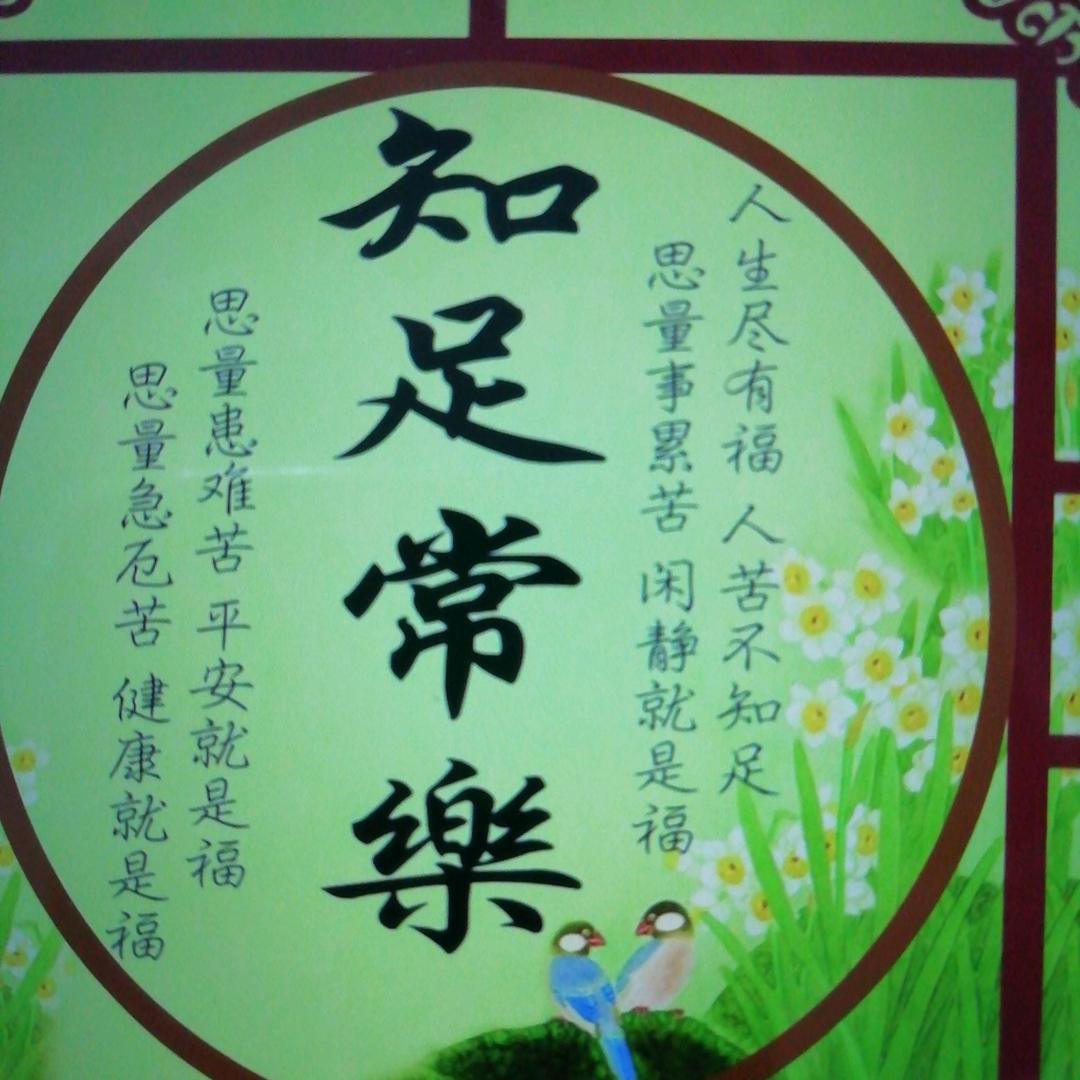 人生尽有福 人苦不知足
思量事累苦 闲静就是福
知足常樂
思量患难苦 平安就是福
思量急厄苦 健康就是福